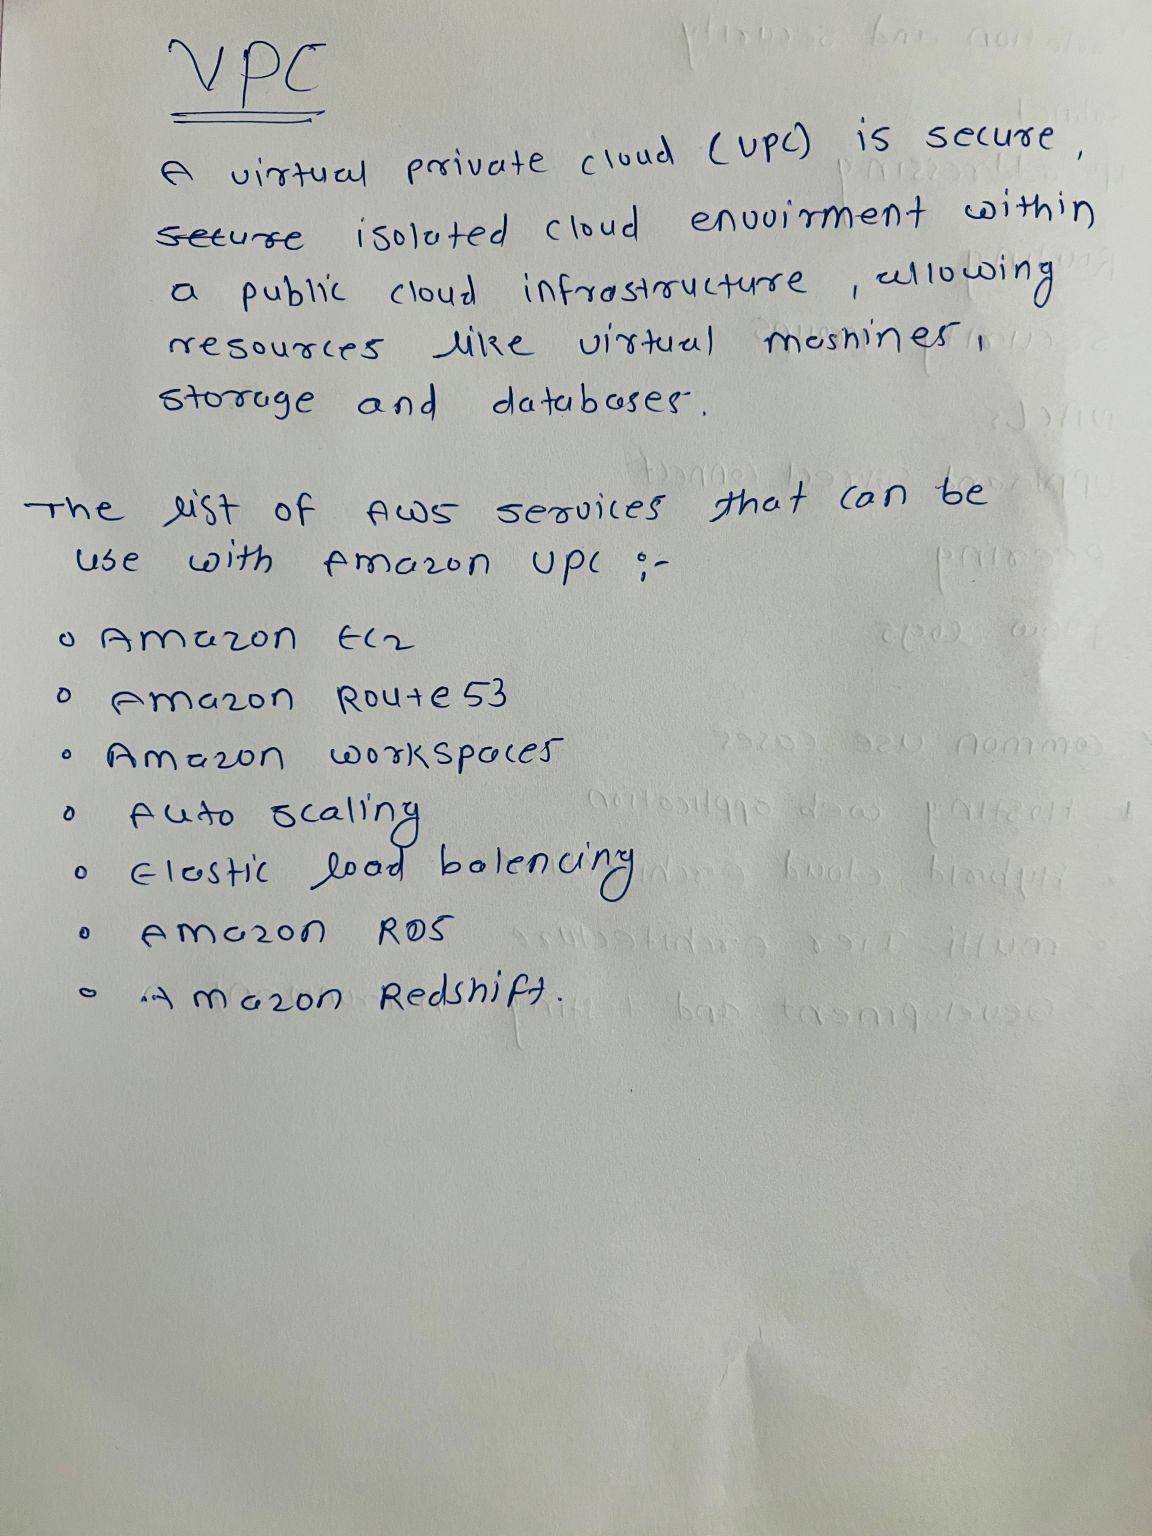 VPC
A virtual private cloud (VPC) is secure,
secure isolated cloud envoirment within
a public cloud infrastructure, allowing
resources like virtual mashines,
storage and databases.
The list of AWS services that can be
use with Amazon VPC :-
o Amazon EC2
o Amazon Route 53
o Amazon workspaces
o Auto scaling
o Elastic load balencing
o Amazon RDS
o Amazon Redshift.